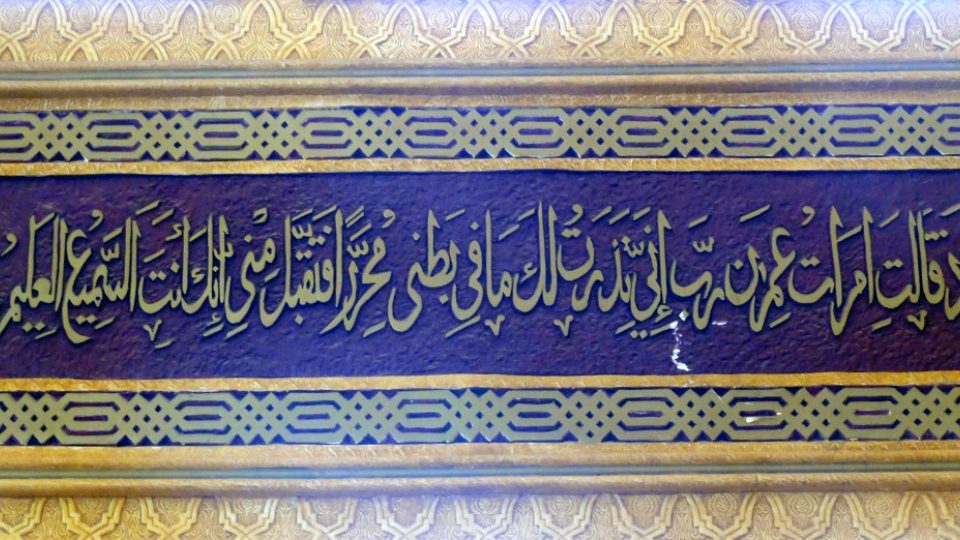 قَالَتِ امْرَأَتُ عِمْرَٰنَ رَبِّ إِنِّي نَذَرْتُ لَكَ مَا فِي بَطْنِي مُحَرَّرًا فَتَقَبَّلْ مِنِّي إِنَّكَ أَنْتَ السَّمِيعُ الْعَلِيمُ